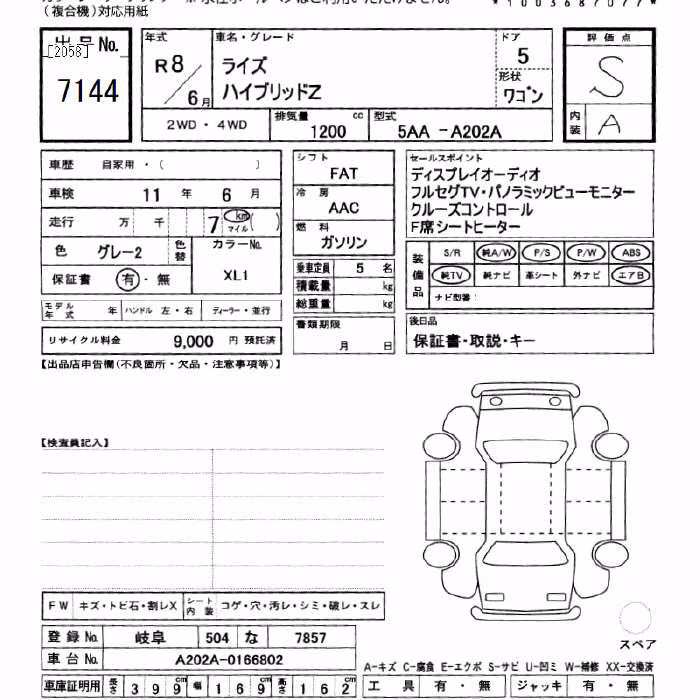 (複合機)対応用紙
*1003687077*
出品No.
[2058]
7144
年式
R8/6月
車名・グレード
ライズ
ハイブリッドZ
ドア
5
形状
ワゴン
評価点
S
内装
A
2WD・4WD
排気量
1200 cc
型式
5AA-A202A
車歴 自家用・( )
車検 11年 6月
走行 万 千 7 km マイル ( )
色 グレー2
色替
カラーNo.
XL1
保証書 有・無
モデル年式 年 ハンドル 左・右 ディーラー・並行
リサイクル料金 9,000 円 預託済
シフト
FAT
冷房
AAC
燃料
ガソリン
乗車定員 5 名
積載量 kg
総重量 kg
書類期限
月 日
セールスポイント
ディスプレイオーディオ
フルセグTV・パノラミックビューモニター
クルーズコントロール
F席シートヒーター
装備品
S/R 純A/W P/S P/W ABS
純TV 純ナビ 革シート 外ナビ エアB
ナビ型番:
後日品
保証書・取説・キー
【出品店申告欄(不良箇所・欠品・注意事項等)】
【検査員記入】
FW キズ・トビ石・割レX シート内装 コゲ・穴・汚レ・シミ・破レ・スレ
登録No. 岐阜 504 な 7857
車台No. A202A-0166802
車庫証明用 長さ 399cm 幅 169cm 高さ 162cm
スペア
A-キズ C-腐食 E-エクボ S-サビ U-凹ミ W-補修 XX-交換済
工具 有・無 ジャッキ 有・無